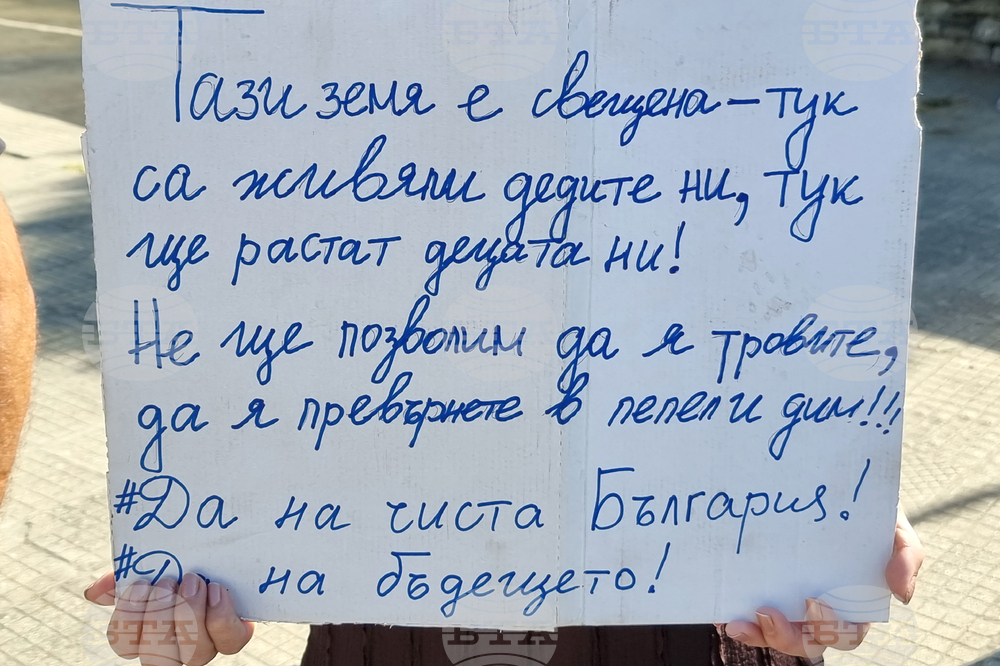 Тази земя е свещена – тук
са живяли дедите ни, тук
ще растат децата ни!
Не ще позволим да я тровите,
да я превърнете в пепел и дим!!!
#Да на чиста България!
#Да на бъдещето!
БТА